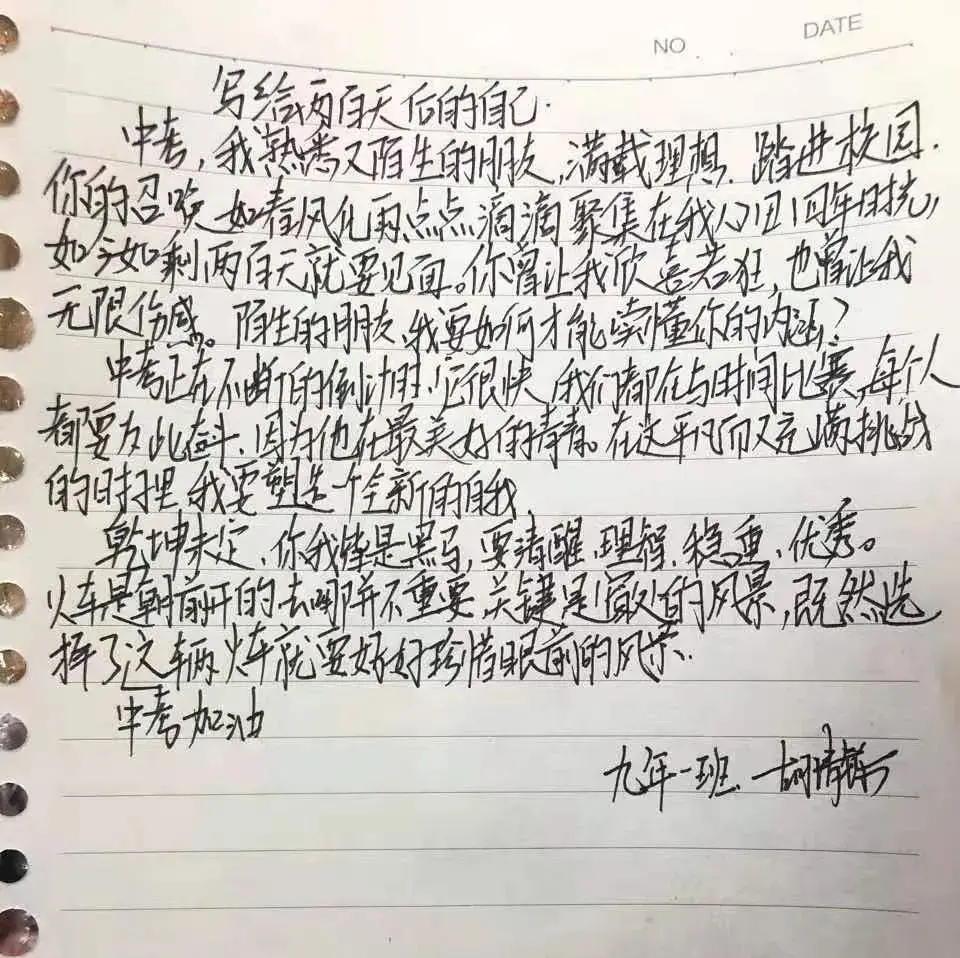 NO
DATE
写给两百天后的自己.
中考,我熟悉又陌生的朋友,满载理想.踏进校园.
你的召唤如春风化雨点点滴滴聚集在我
如今如剩两百天就要见面。你曾让我欣喜若狂,也曾让我
无限伤感。陌生的朋友、我要如何才能读懂你的内涵?
中考正在不断的倒计时,它很快,我们都在与时间比赛,每个人
都要为此奋斗,因为他在最美好的青春。在这平凡而又充满挑战
的时担里,我要塑造一个全新的自我,
乾坤未定、你我皆是黑马,要清醒、理智、稳重、优秀。
火车是朝前开的去哪并不重要、关键是窗外的风景,既然选
择了这辆火车就要好好珍惜眼前的风景.
中考加油
九年一班.胡